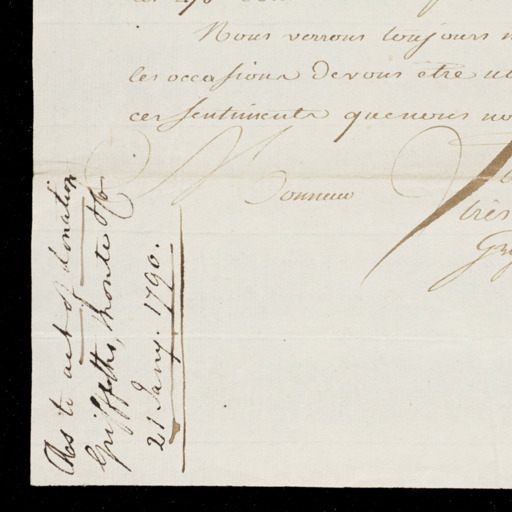 Nous verrons toujours
les occasions de vous être
ces sentiments que nous
Monsieur
très
As to act of donation
Griffiths, Monte &c
21 Jany. 1790.